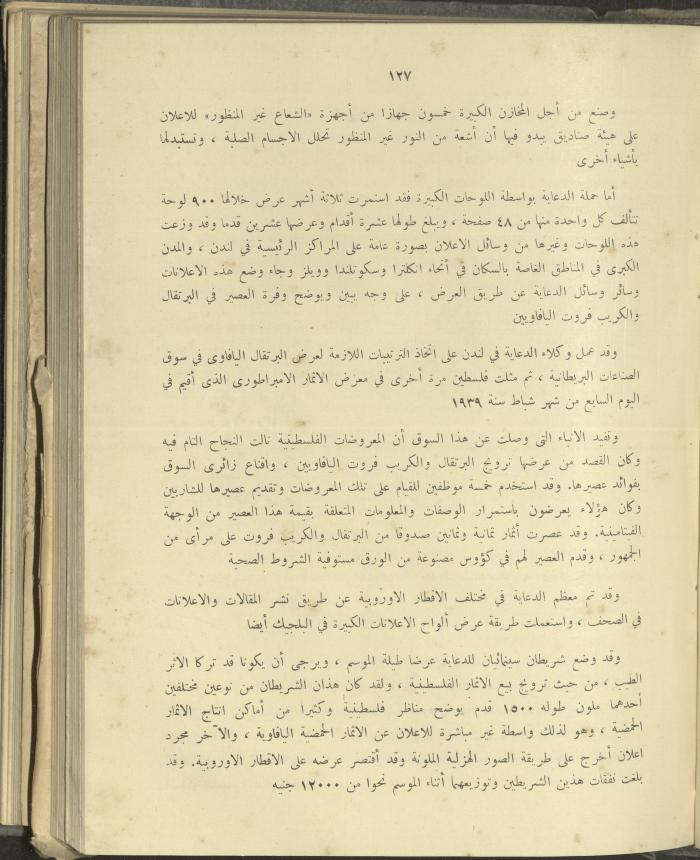 ١٢٧
وصنع من أجل المخازن الكبيرة خمسون جهازا من أجهزة «الشعاع غير المنظور» للاعلان
على هيئة صناديق يبدو فيها أن أشعة من النور غير المنظور تحلل الاجسام الصلبة ، وتستبدلها
بأشياء أخرى
أما حملة الدعاية بواسطة اللوحات الكبيرة فقد استمرت ثلاثة أشهر عرض خلالها ٩٠٠ لوحة
تتألف كل واحدة منها من ٤٨ صفحة ، ويبلغ طولها عشرة أقدام وعرضها عشرين قدما وقد وزعت
هذه اللوحات وغيرها من وسائل الاعلان بصورة عامة على المراكز الرئيسية في لندن ، والمدن
الكبرى في المناطق الغاصة بالسكان في أنحاء انكلترا وسكوتلندا وويلز وجاء وضع هذه الاعلانات
وسائر وسائل الدعاية عن طريق العرض ، على وجه يبين ويوضح وفرة العصير في البرتقال
والكريب فروت اليافاويين
وقد عمل وكلاء الدعاية في لندن على اتخاذ الترتيبات اللازمة لعرض البرتقال اليافاوى في سوق
الصناعات البريطانية ، ثم مثلت فلسطين مرة أخرى في معرض الاثمار الامبراطورى الذى أقيم في
اليوم السابع من شهر شباط سنة ١٩٣٩
وتفيد الانباء التى وصلت عن هذا السوق أن المعروضات الفلسطينية نالت النجاح التام فيه
وكان القصد من عرضها ترويج البرتقال والكريب فروت اليافاويين ، واقناع زائرى السوق
بفوائد عصيرها. وقد استخدم خمسة موظفين للقيام على تلك المعروضات وتقديم عصيرها للشاربين
وكان هؤلاء يعرضون باستمرار الوصفات والمعلومات المتعلقة بقيمة هذا العصير من الوجهة
الفيتامينية. وقد عصرت أثمار ثمانية وثمانين صندوقا من البرتقال والكريب فروت على مرأى من
الجمهور ، وقدم العصير لهم في كؤوس مصنوعة من الورق مستوفية الشروط الصحية
وقد تم معظم الدعاية في مختلف الاقطار الاوروبية عن طريق نشر المقالات والاعلانات
في الصحف ، واستعملت طريقة عرض ألواح الاعلانات الكبيرة في البلجيك أيضا
وقد وضع شريطان سينمائيان للدعاية عرضا طيلة الموسم ، ويرجى أن يكونا قد تركا الاثر
الطيب ، من حيث ترويج بيع الاثمار الفلسطينية ، ولقد كان هذان الشريطان من نوعين مختلفين
أحدهما ملون طوله ١٥٠٠ قدم يوضح مناظر فلسطينية وكثيرا من أماكن انتاج الاثمار
الحمضية ، وهو لذلك واسطة غير مباشرة للاعلان عن الاثمار الحمضية اليافاوية ، والآخر مجرد
اعلان أخرج على طريقة الصور الهزلية الملونة وقد أقتصر عرضه على الاقطار الاوروبية. وقد
بلغت نفقات هذين الشريطين وتوزيعهما أثناء الموسم نحوا من ١٢٠٠٠ جنيه